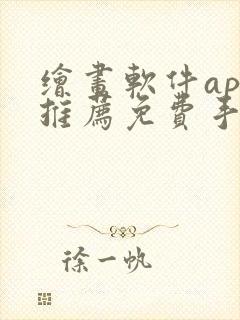 繪畫軟件ap
推薦免費手
徐一帆